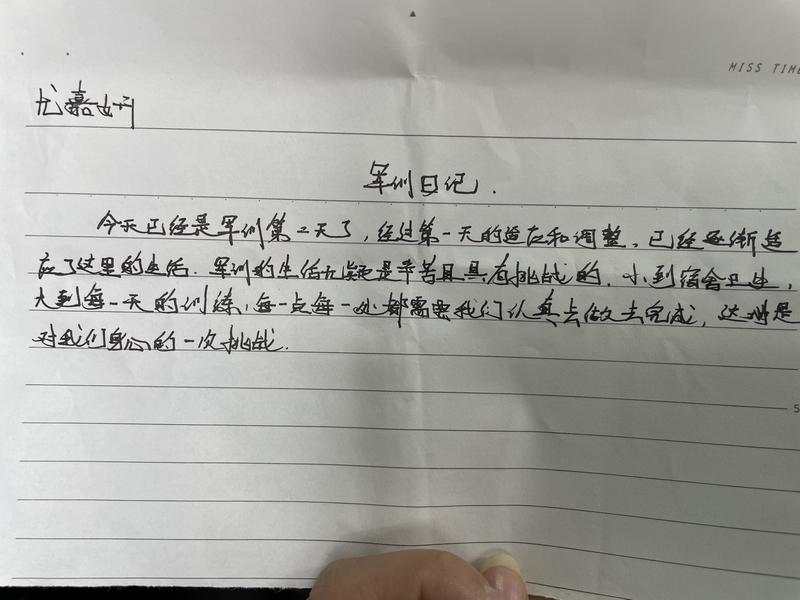 MISS TIME
尤嘉
军训日记.
今天已经是军训第二天了，经过第一天的适应和调整，已经逐渐适
应了这里的生活.军训的生活是辛苦且具有挑战的.小到宿舍卫生，
大到每一天的训练，每一点每一处都需要我们认真去做去完成，这
对我们身心的一次挑战.
5